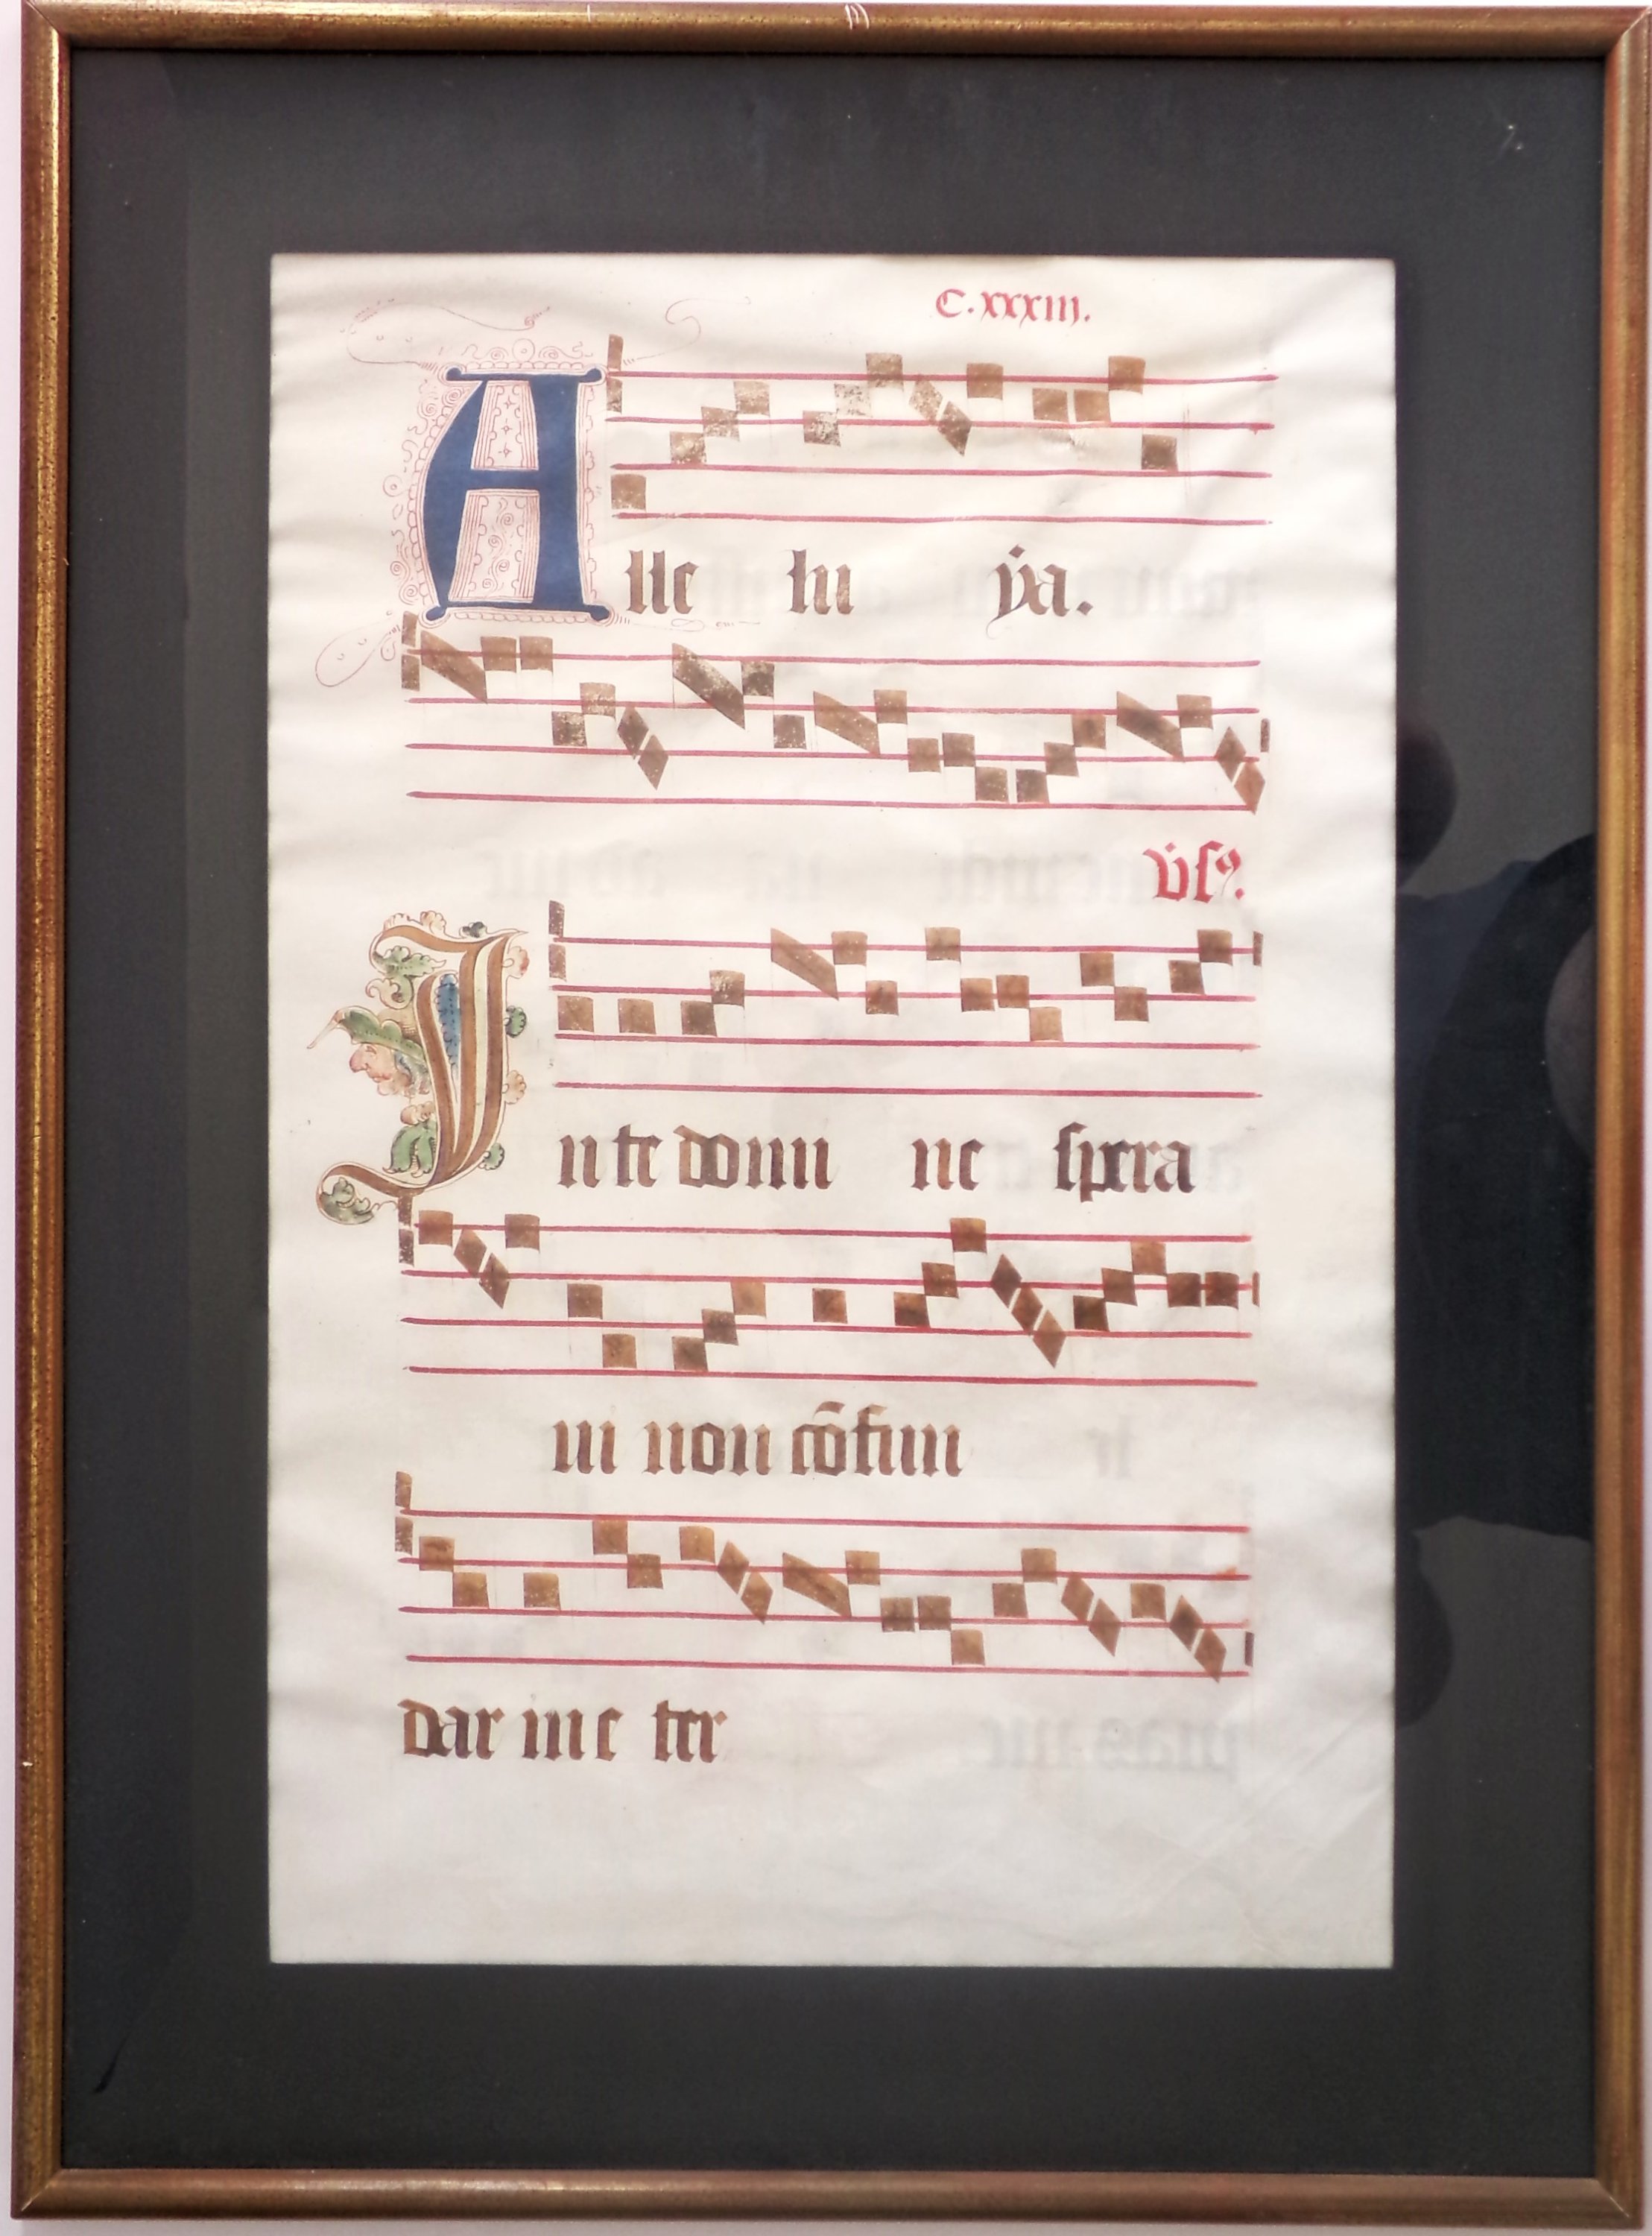 C.xxxiii.
Alle lu ẏa.
v̇ſꝰ.
In te domi ne ſpera
ui non cōfun
dar in e ter